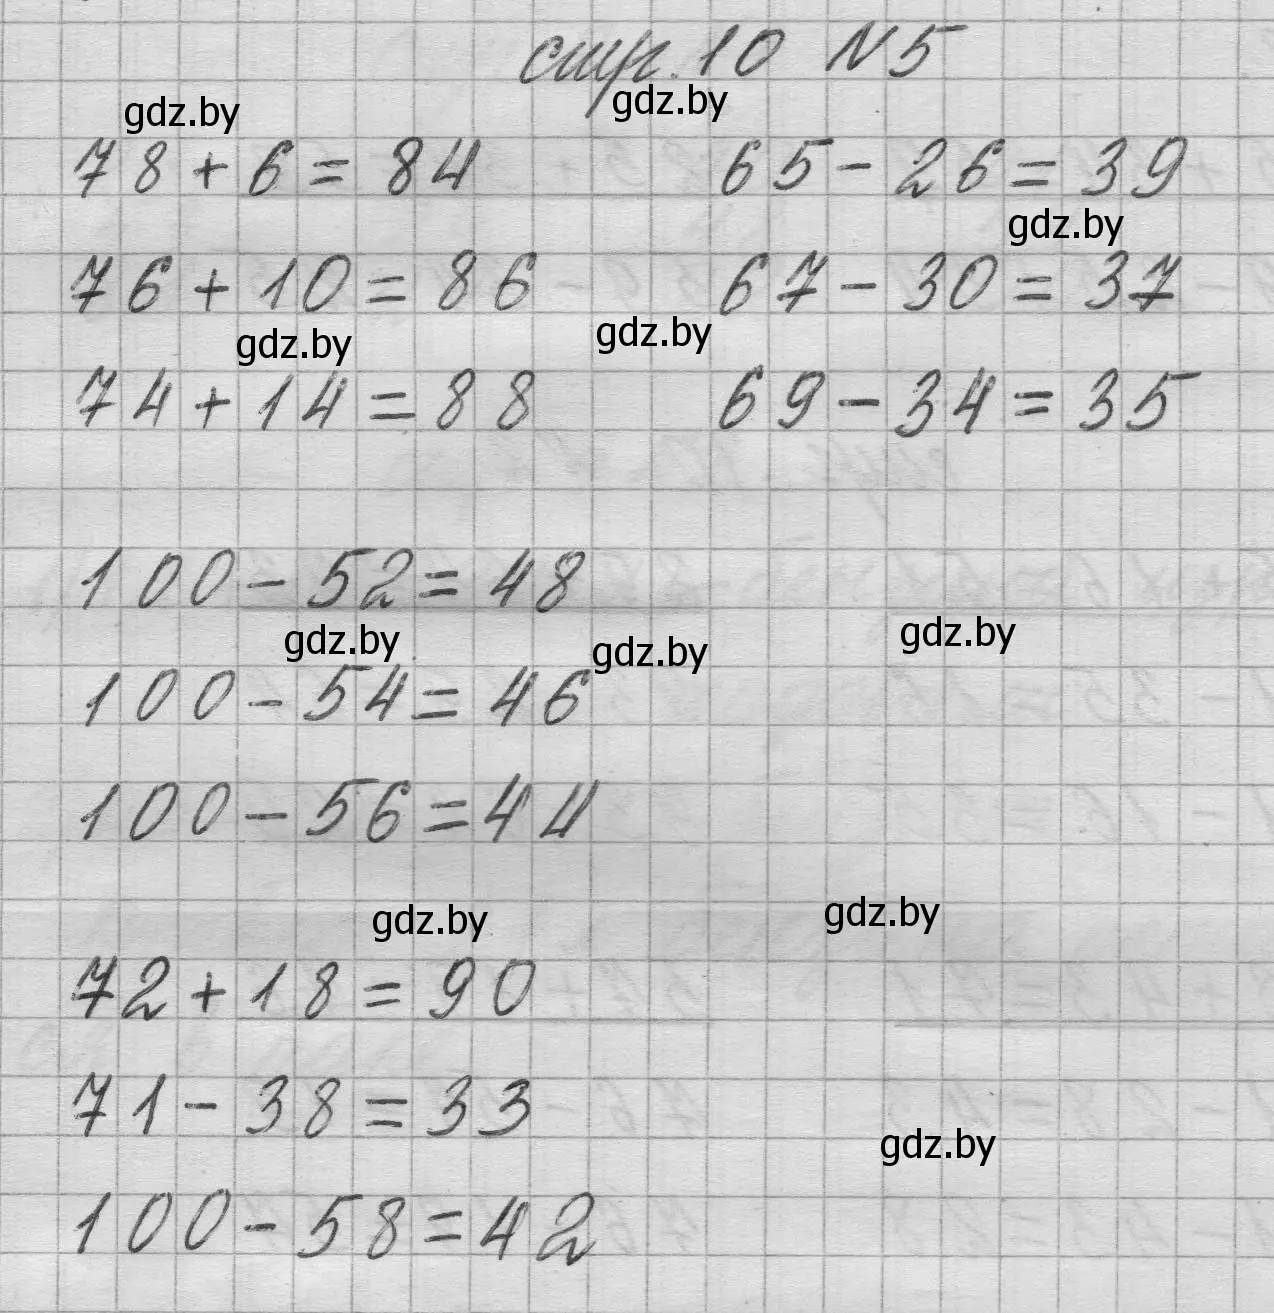 стр. 10 N 5
gdz.by gdz.by
78 + 6 = 84 65 - 26 = 39
gdz.by
76 + 10 = 86 67 - 30 = 37
gdz.by gdz.by
74 + 14 = 88 69 - 34 = 35
100 - 52 = 48
gdz.by gdz.by gdz.by
100 - 54 = 46
100 - 56 = 44
gdz.by gdz.by
72 + 18 = 90
71 - 38 = 33
gdz.by
100 - 58 = 42